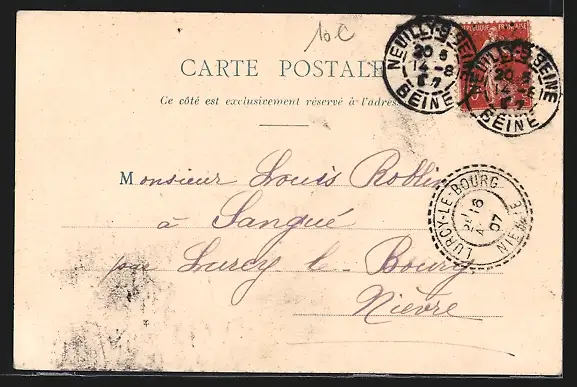 10 C
RÉPUBLIQUE FRANÇAISE
NEUILLY-S-SEINE
20 8
14-8
07
SEINE
NEUILLY-S-SEINE
20 8
14-8
07
SEINE
CARTE POSTALE
Ce côté est exclusivement réservé à l'adresse
Monsieur Louis Roblin
à Sangué
par Lurcy le-Bourg
Nièvre
LURCY-LE-BOURG
16
07
NIÈVRE